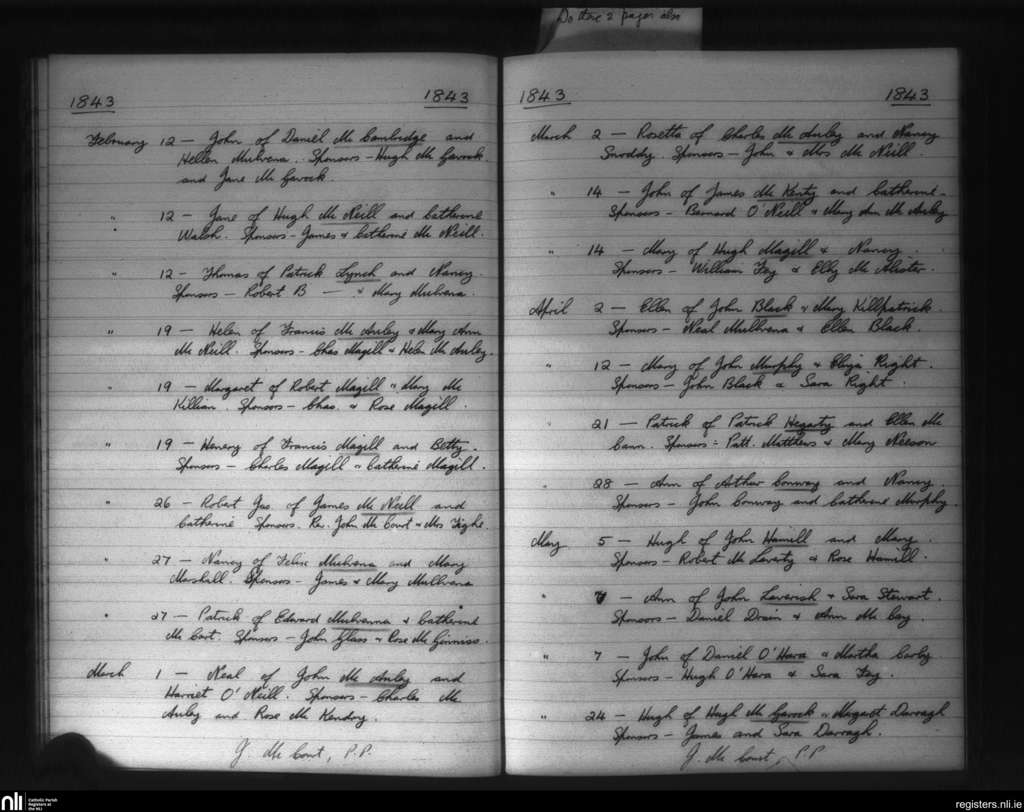 Do these 2 pages also
1843 1843
February 12 — John of Daniel Mc Cambridge and
Hellen Mulvena. Sponsors — Hugh Mc Gavock
and Jane Mc Gavock.
" 12 — Jane of Hugh Mc Neill and Catherine
Walsh. Sponsors — James & Catherine Mc Neill.
" 12 — Thomas of Patrick Lynch and Nancy.
Sponsors — Robert B — & Mary Mulvena.
" 19 — Helen of Francis Mc Auley & Mary Ann
Mc Neill. Sponsors — Chas Magill & Helen Mc Auley.
" 19 — Margaret of Robert Magill & Mary Mc
Killian. Sponsors — Chas. & Rose Magill.
" 19 — Henery of Francis Magill and Betty.
Sponsors — Charles Magill & Catherine Magill.
" 26 — Robert Jas. of James Mc Neill and
Catherine Sponsors. Rev. John Mc Court & Mrs Tighe.
" 27 — Nancy of Felix Mulvena and Mary
Marshall. Sponsors — James & Mary Mulvena
" 27 — Patrick of Edward Mulvenna & Catherine
Mc Cart. Sponsors — John Glass & Rose Mc Ginniss.
March 1 — Neal of John Mc Auley and
Harriet O'Neill. Sponsors — Charles Mc
Auley and Rose Mc Kendry.
J. Mc Court, P.P.
1843 1843
March 2 — Rosetta of Charles Mc Auley and Nancy
Snoddy. Sponsors — John & Mrs Mc Neill.
" 14 — John of James Mc Kenty and Catherine —
Sponsors — Barnard O'Neill & Mary Ann Mc Auley
" 14 — Mary of Hugh Magill & Nancy.
Sponsors — William Fay & Elly Mc Alister.
April 2 — Ellen of John Black & Mary Killpatrick.
Sponsors — Neal Mullvena & Ellen Black.
" 12 — Mary of John Murphy & Right.
Sponsors — John Black & Sara Right.
" 21 — Patrick of Patrick Hegarty and Ellen Mc
Cann. Sponsors: Patt. Matthews & Mary Neeson
" 28 — Ann of Arthur Conway and Nancy.
Sponsors — John Conway and Catherine Murphy.
May 5 — Hugh of John Hamill and Mary.
Sponsors — Robert Mc Laverty & Rose Hamill.
" 7 — Ann of John Laverick & Sara Stewart.
Sponsors — Daniel Drain & Ann Mc Cay.
" 7 — John of Daniel O'Hara & Martha Carby.
Sponsors — Hugh O'Hara & Sara Fay.
" 24 — Hugh of Hugh Mc Gavock & Margaret Darragh
Sponsors — James and Sara Darragh.
J. Mc Court, P.P
nli Catholic Parish
Registers at
the NLI
registers.nli.ie